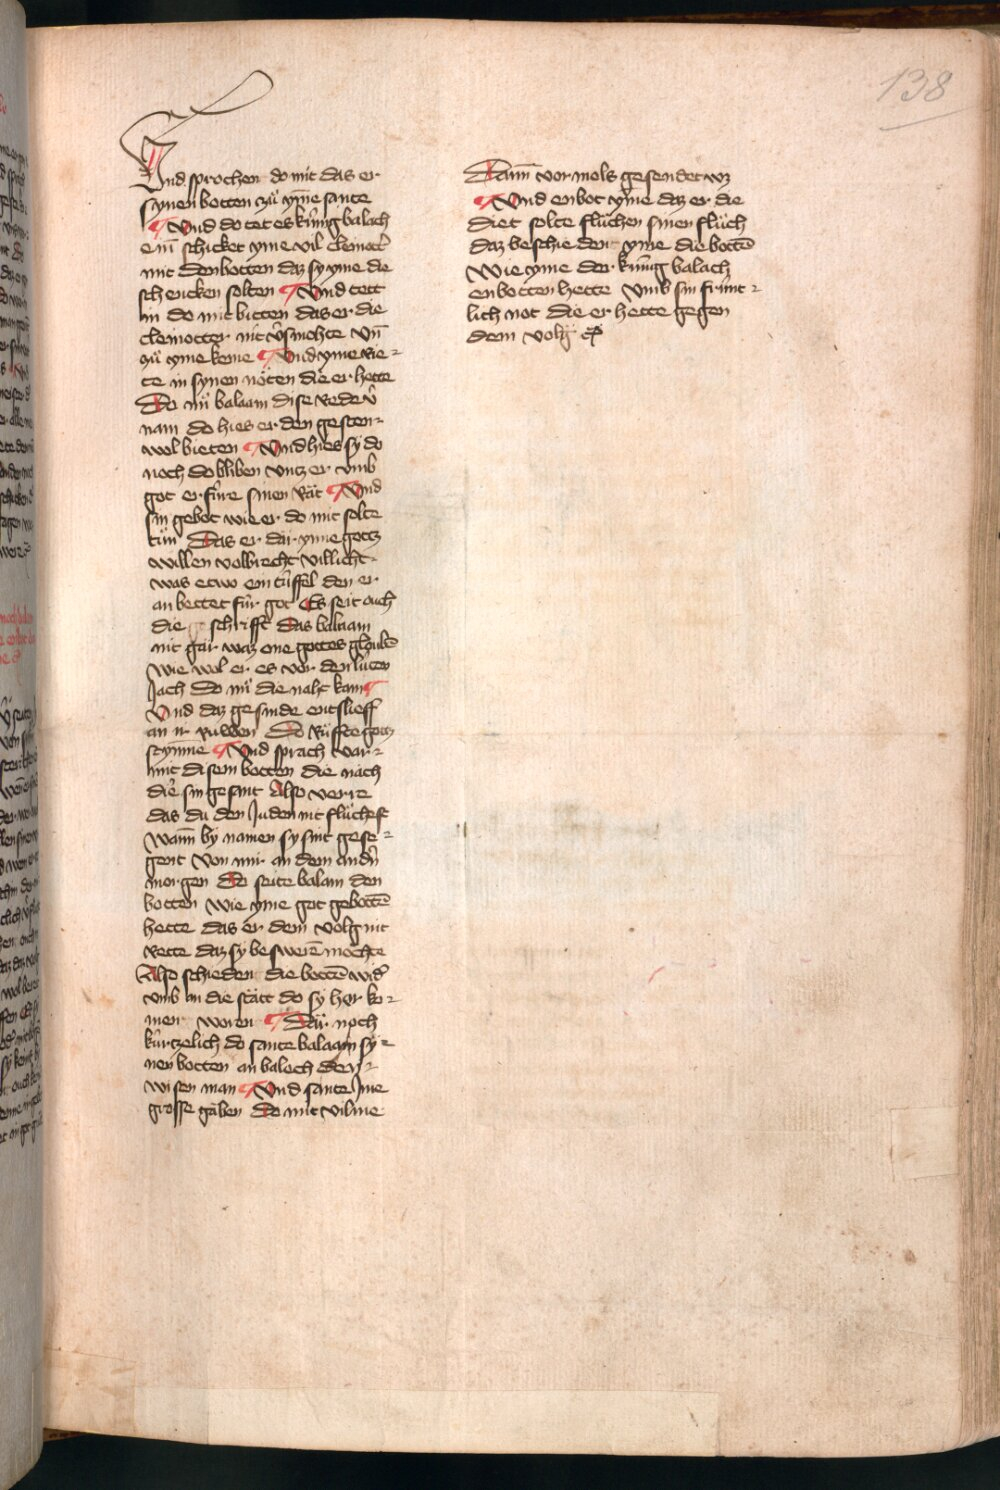 138
Und sprochen do mit das er
synen botten zuͦ yme sante
¶ Und do tet es kúnig balach
ein schicket yme vil cleinott
mit den botten daz sy yme die
schencken solten ¶ Und tett
in do mit bitten das er die
cleinotter nit v̓smohte vn̄
zuͦ yme keme ¶ Und yme rie-
te in synen nöten die er hette
Do nuͦ balaam dise rede v̓
nam do hies er den gesten
wol bieten ¶ Und hies sy do
noch do bliben vntz er vmb
got erfúre sinen rät ¶ Und
sin gebot wie er do mit solte
tuͦn Das er dar ynne gottz
willen volbrecht villicht
was etwo ein túffel den er
an bettet fúr got Es seit ouch
die schrifft das balaam
nit gar waz one gottes glouben
wie wol er es vor den lúten
Jach Do nuͦ die naht kam ¶
Und daz gesinde entslieff
an ir ruwen Do ruͦffte gottz
stymme ¶ Und sprach var
mit disem botten die näch
dir sin gesant Also verre
das du den Juden nit fluͦchest
Wann by namen sy sint gese-
gent von mir an dem andn̄
morgen Do seite balam den
botten wie yme got gebottē
hette das er dem volg nit
rette daz sy besweren möchte
Also schieden die bottē wid̓
vmb an die statt do sy her ko-
men woren ¶ Dar noch
kúrtzelich do sante balaam sy-
nen botten an balach den
wisen man ¶ Und sante Ime
grosse gäben Do mit vil me
Dann vormols gesendet wz
¶ Und enbot yme daz er die
diet solte fluͦchen sinen fluͦch
daz beschieden yme die bottē
Wie yme der kúnig balach
enbotten hette Umb sin frúnt-
lich not die er hette gegen
dem volg